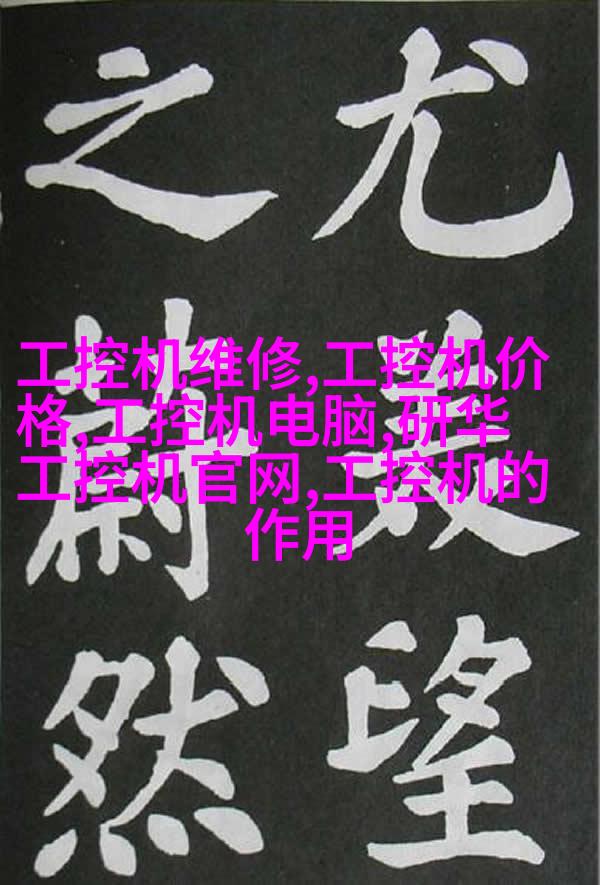 尤美望
之蔚然
工控机维修,工控机价
格,工控机电脑,研华
工控机官网,工控机的
作用